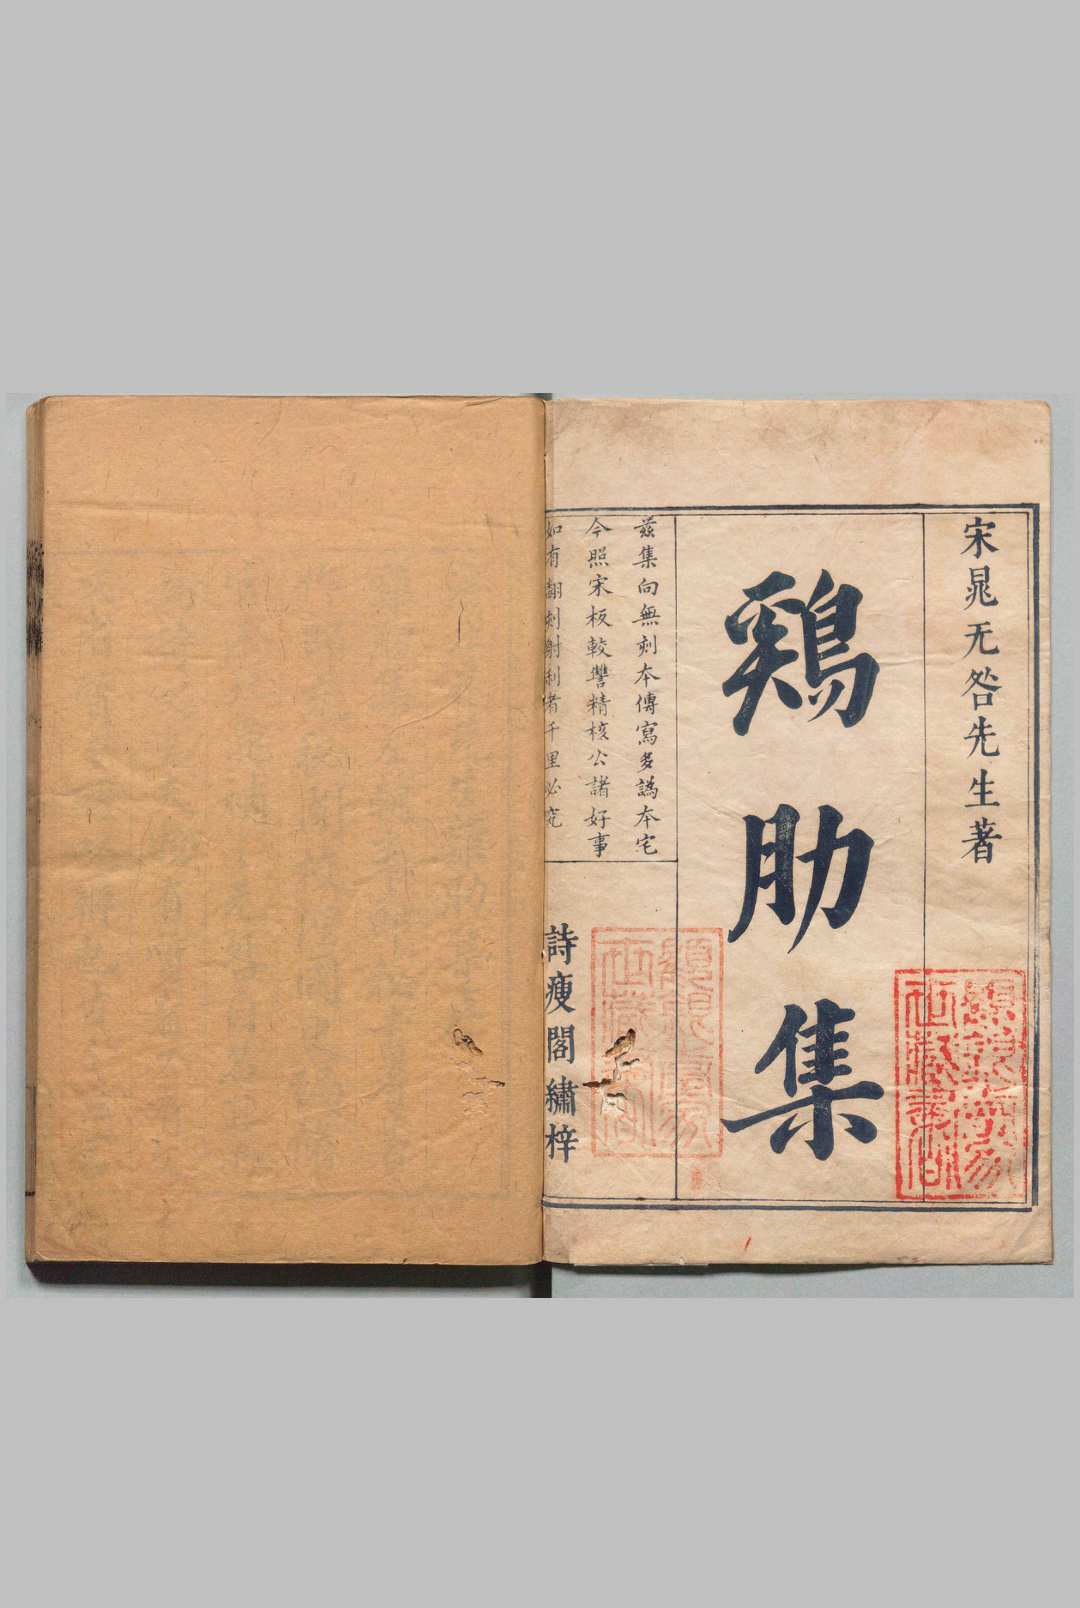 宋晁无咎先生著
鷄肋集
茲集向無刻本傳寫多譌本宅
今照宋板較讐精核公諸好事
如有翻刻射利者千里必究
詩瘦閣繡梓